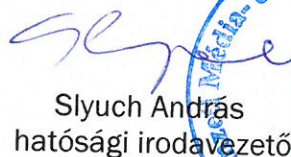 Slyuch András
hatósági irodavezető